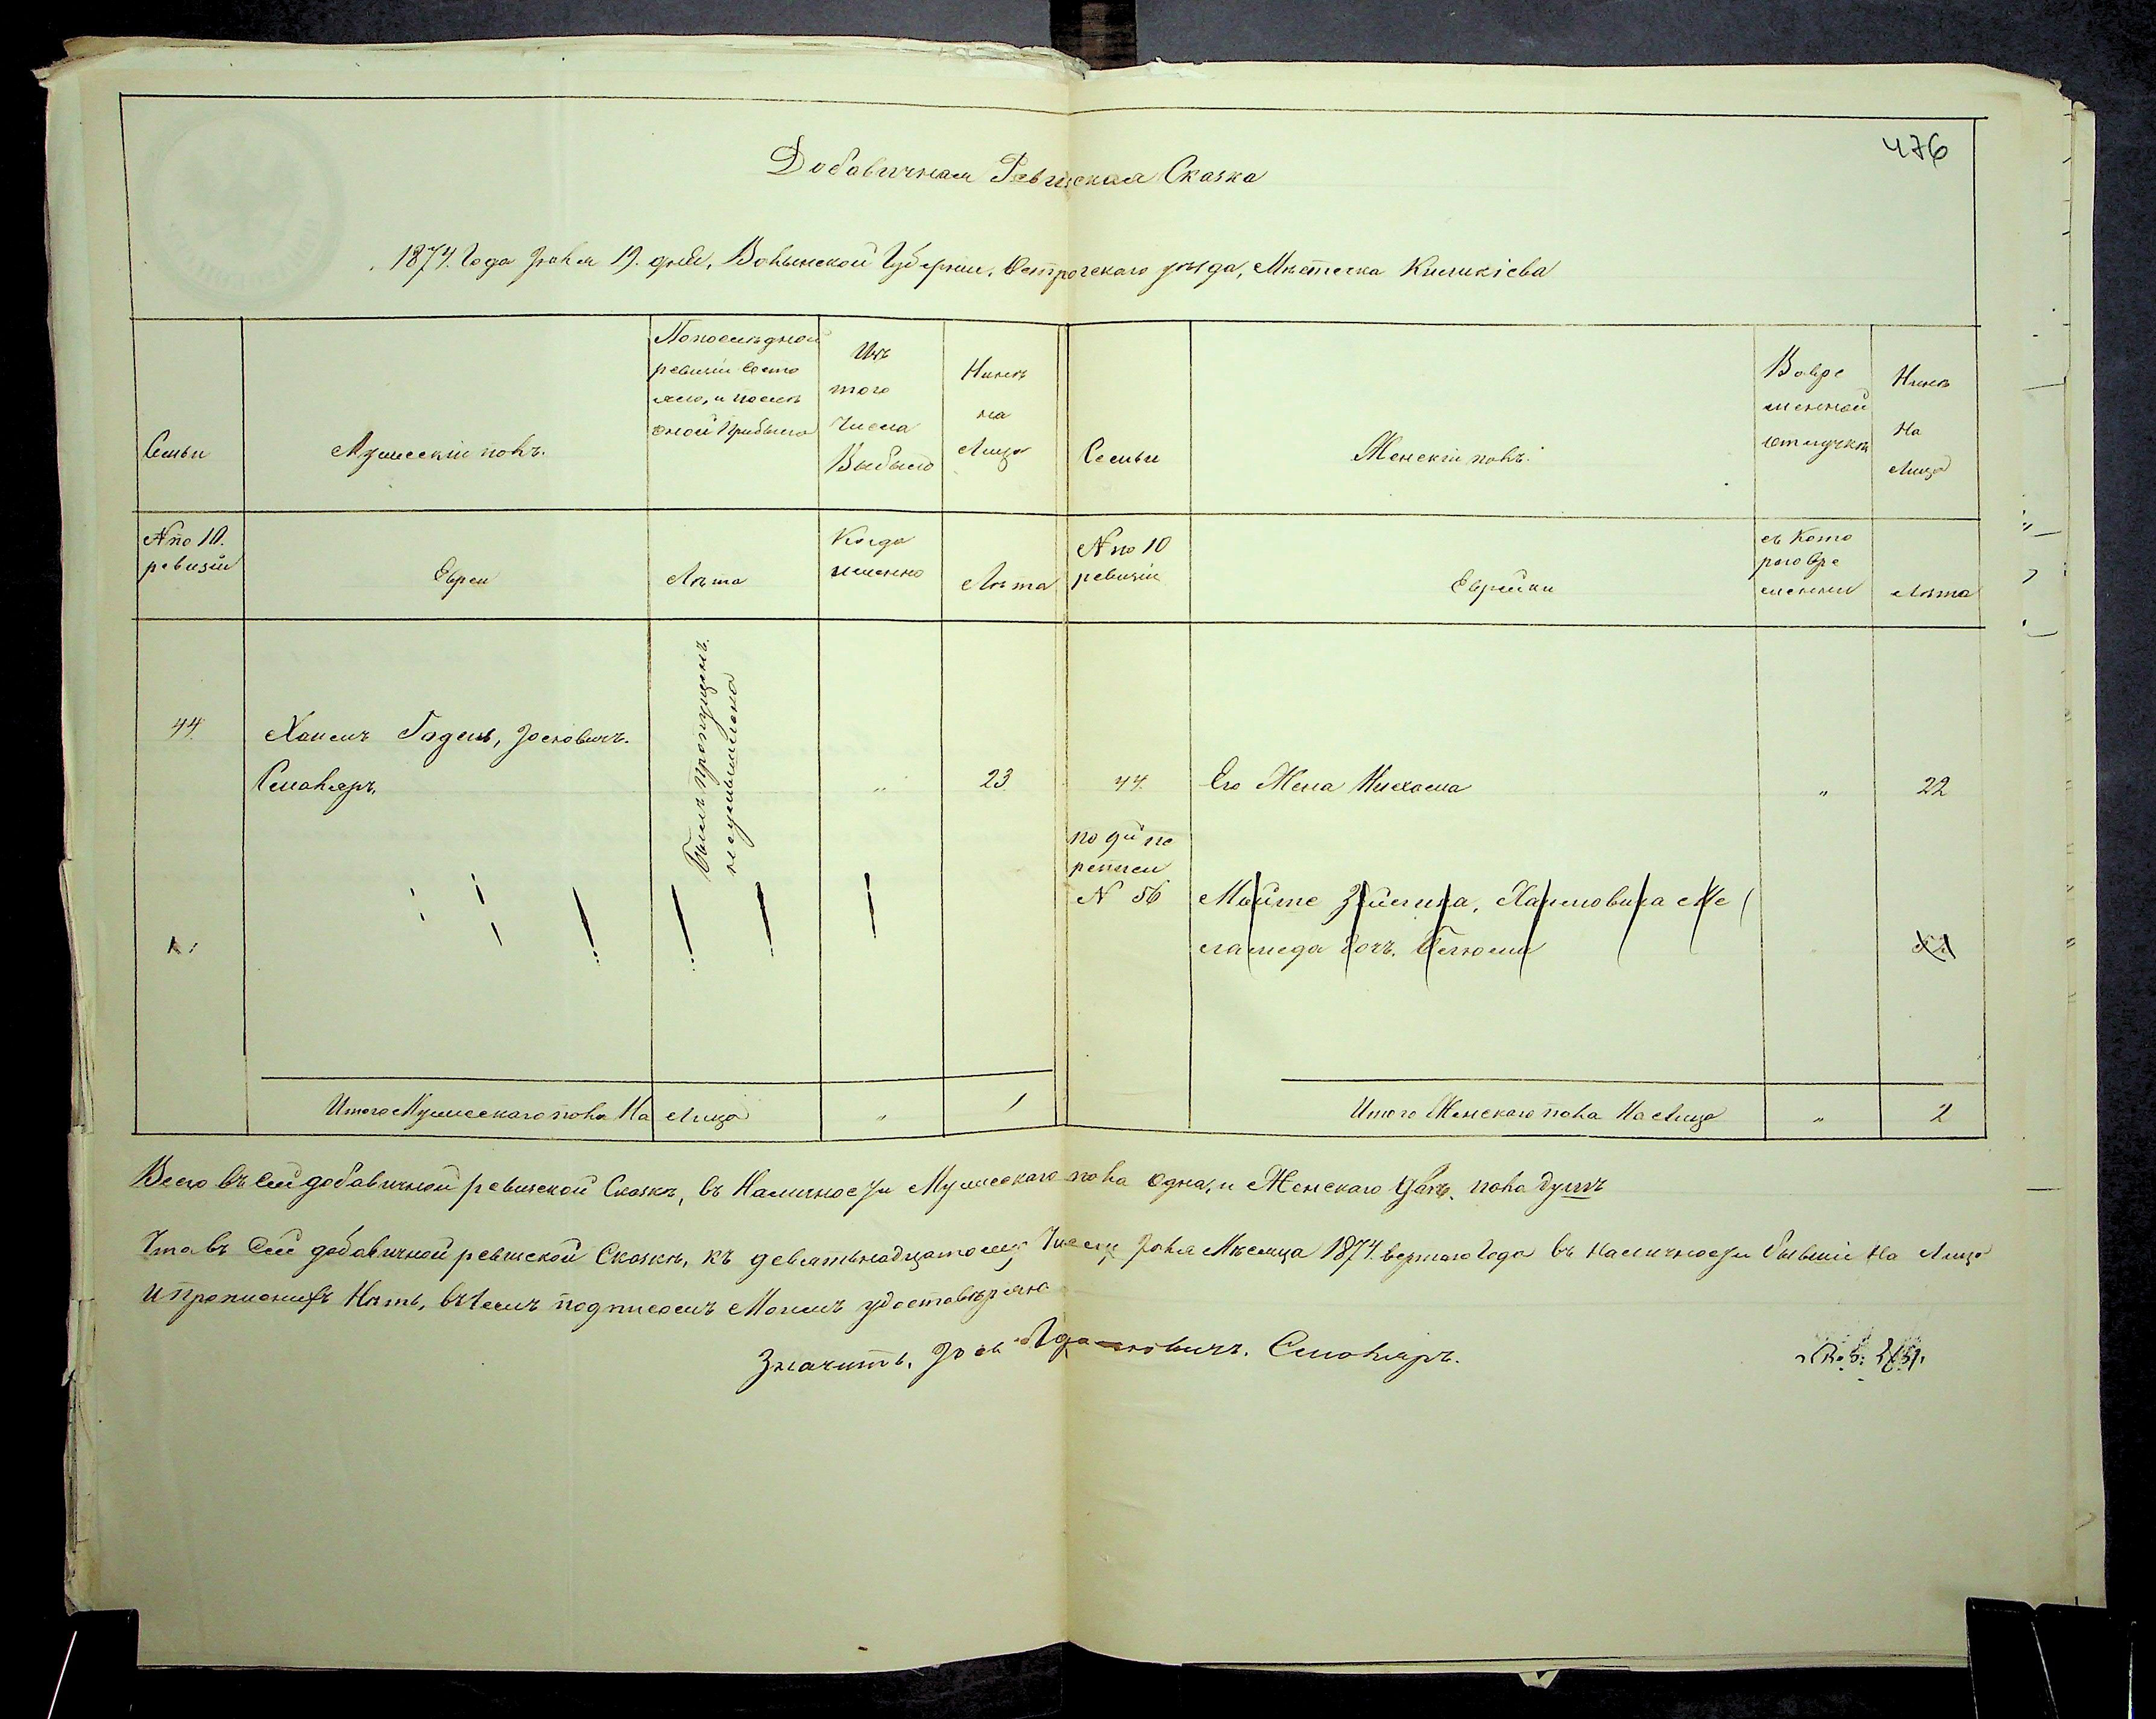 476
Добавичная Ревиская Сказка
1874. Года Іюля 19. дня, Волынской Губернии, Острогскаго уезда, Местечка Киликіева
Семьи
Мужескій полъ.
По последной
ревизіи состо
яло, и после
оной прибыло
Изъ
того
Числа
Выбыло
Ныне
на
Лицо
Семьи
Женскій полъ.
Вовре
менной
отлучке
Ныне
На
Лицо
№ по 10.
ревизіи
Евреи
Лета
Когда
именно
Лета
№ по 10
ревизіи
Еврейки
съ Кото
раго вре
мени
Лета
44
Хаимъ Годель, Іосковичъ.
Смоляръ.
Былъ пропущенъ.
неумышлено
"
23
44.
Его Жена Нихама
"
22
по
№ 56
Хаимовича Ме
ламеда дочь.
Итого Мужескаго пола На Лицо
"
1
Итого Женскаго пола На Лицо
"
2
Всего въ сей добавичной ревиской Сказке, въ Наличности Мужескаго пола одна, и Женскаго две. пола душъ
Что въ сей добавичной ревиской Сказке, къ девятьнадцатому Числу Іюля Месяца 1874. Года въ Наличности бывшіе На Лицо
и прописныхъ Нетъ, въ темъ подписомъ Моимъ удостоверяю
Значитъ, Іось Смоляръ.